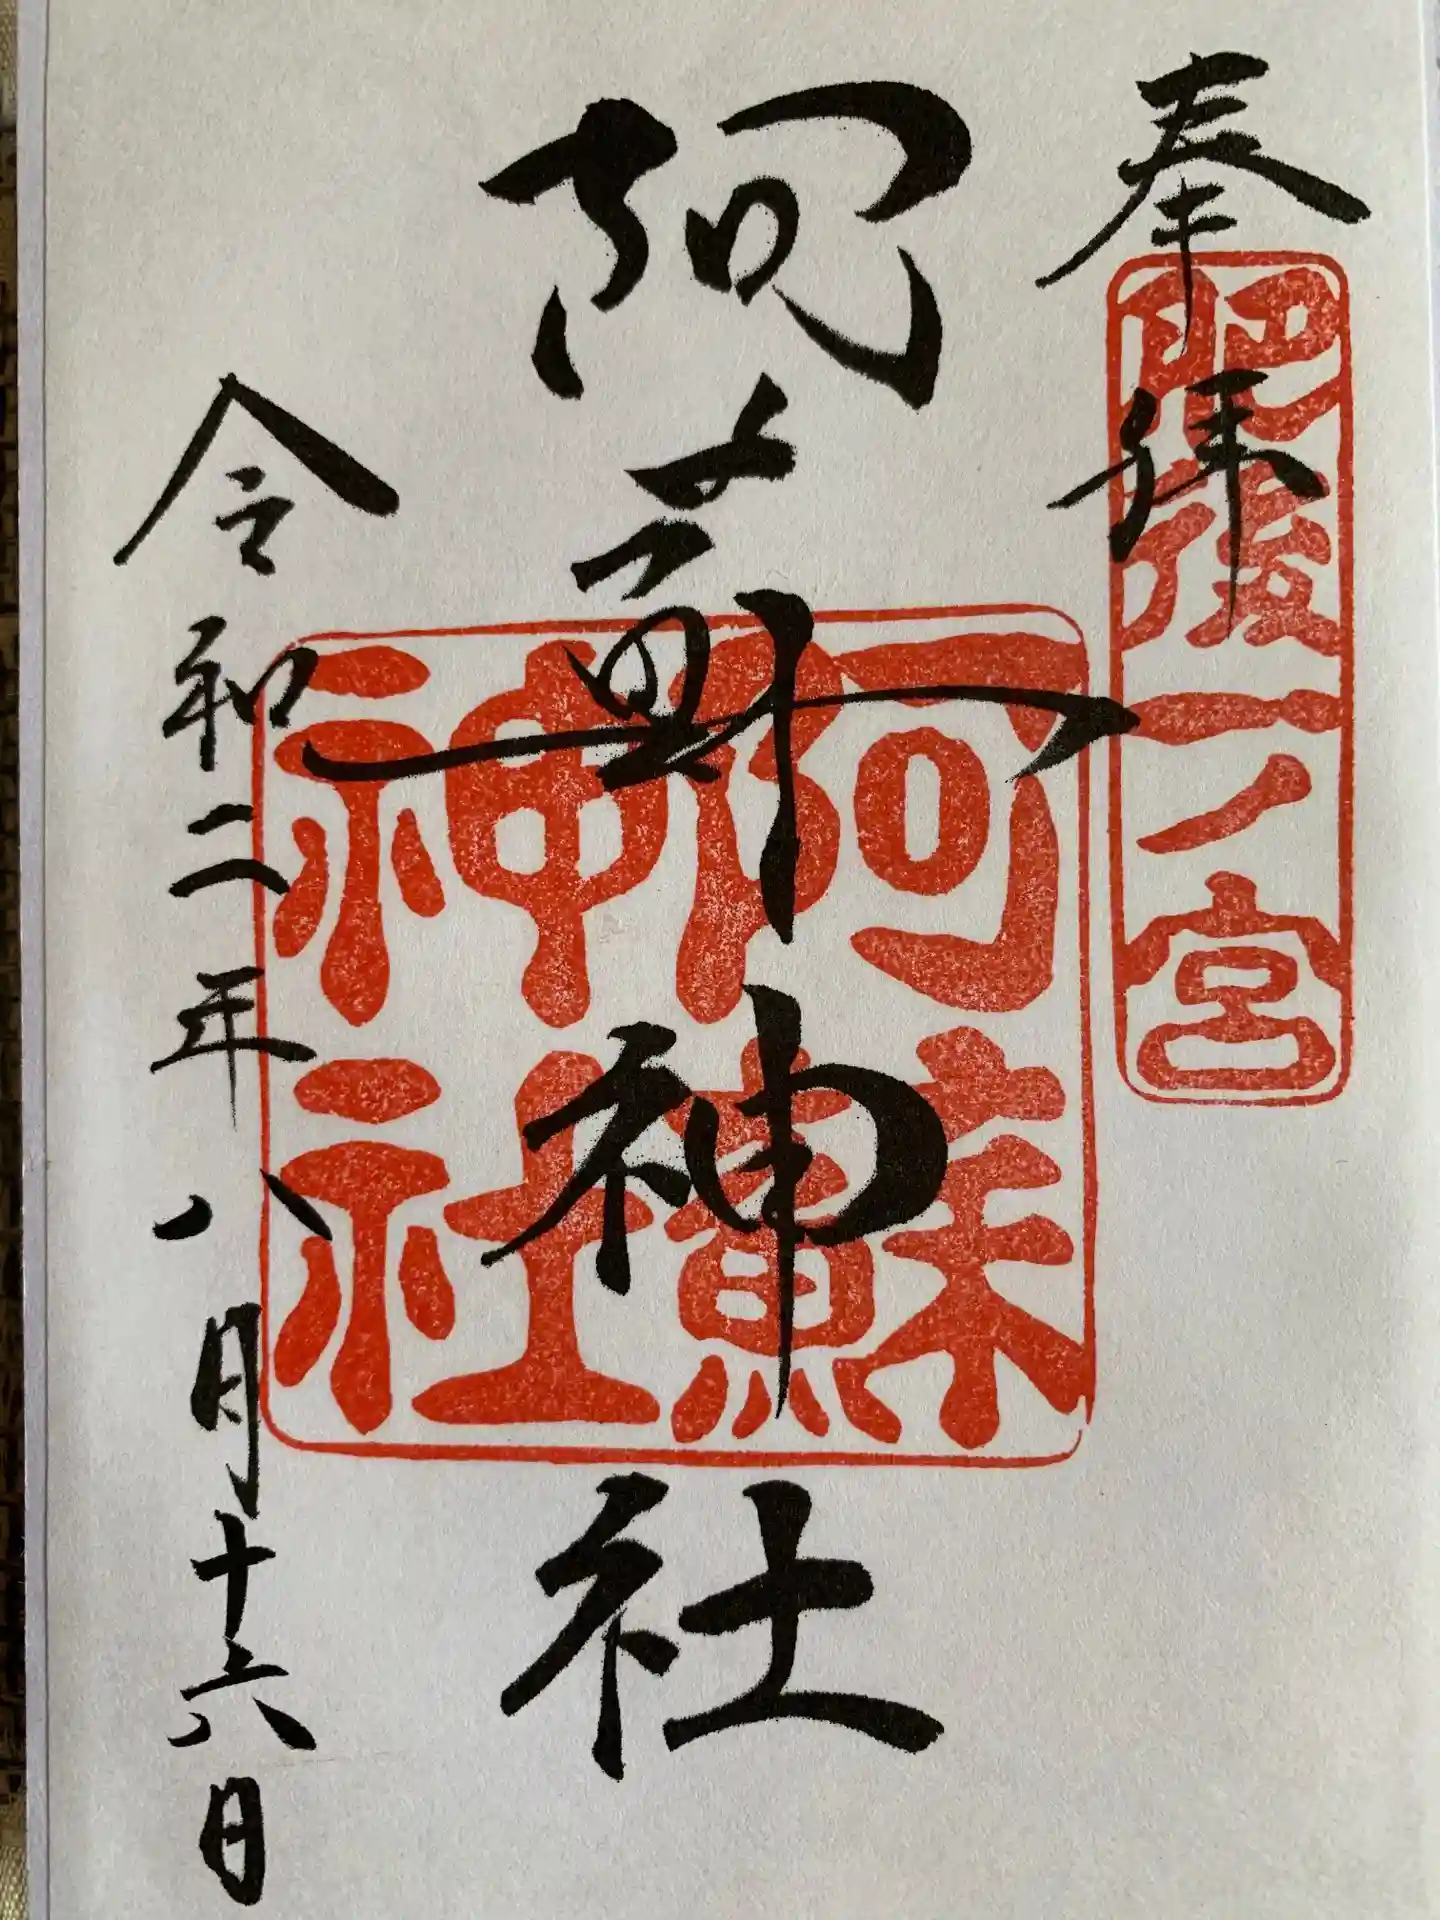 奉拝
肥後一ノ宮
阿蘇神社
阿蘇
神社
令和二年八月十六日